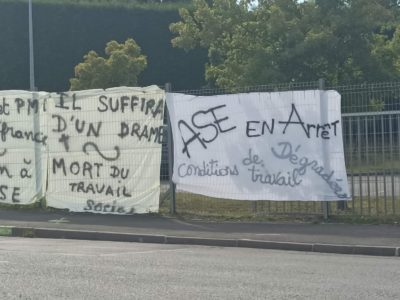 t PMI
france
n à
SE
IL SUFFIRA
D'UN DRAME
MORT DU
TRAVAIL
Social
ASE EN ArrêT
conditions de travail Dégradées